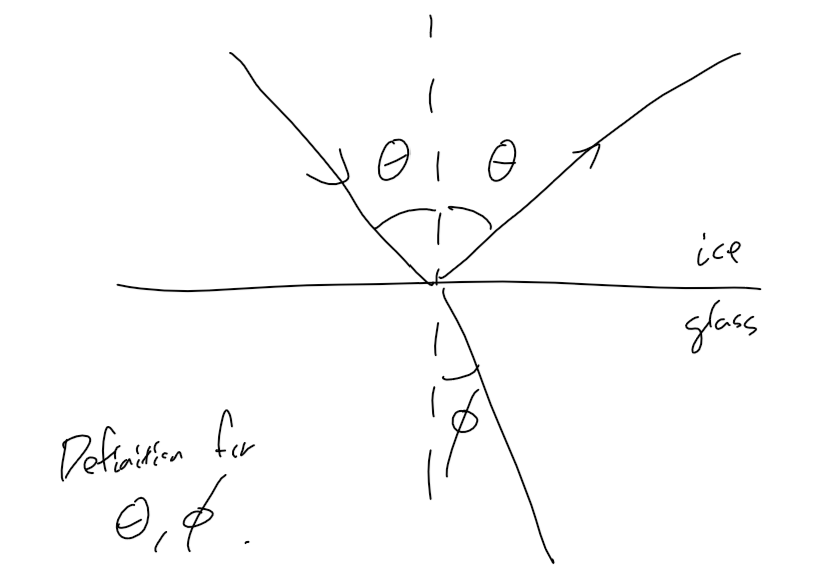 θ θ
ice
glass
ϕ
Definition for
θ, ϕ.